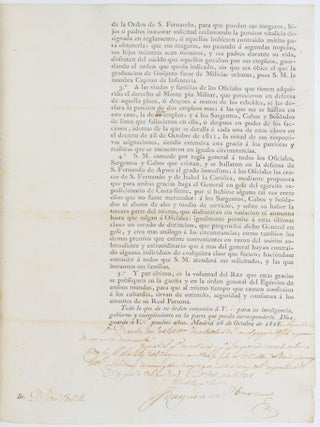 de la Orden de S. Fernando, para que puedan sus mugeres, hi-
jos ó padres instaurar solicitud reclamando la pension vitalicia de-
signada en reglamento, si aquellos hubiesen contraido mérito pa-
ra obtenerla: que sus mugeres, no pasando á segundas nupcias,
sus hijos mientras sean menores, y sus padres siendo viudos,
disfruten del sueldo que aquellos gozaban por sus empleos, guar-
dando el órden que queda indicado, sin que sea óbice el que la
graduacion de Guijarro fuese de Milicias urbanas, pues S. M. le
nombra Capitan de Infantería.
3.º A las viudas y familias de los Oficiales que tienen adqui-
rido el derecho al Monte pio Militar, que perecieron en defensa
de aquella plaza, ó despues á manos de los rebeldes, se les de-
clara la pension de dos empleos mas: á las que no se hallan en
este caso, la de empleo: y á las de los Sargentos, Cabos y Soldados
de línea que fallecieron en ella, ó despues en poder de los fac-
ciosos, ademas de la que se detalla á cada una de estas clases en el
decreto de 28 de Octubre de 1811, la mitad de sus respectivas
asignaciones, siendo estensiva esta gracia á los patricios y
realistas que se encuentren en iguales circunstancias.
4.º S. M. concede por regla general á todos los Oficiales,
Sargentos y Cabos que existan, y se hallaron en la defensa
de S. Fernando de Apure el grado inmediato; á los Oficiales las cru-
ces de S. Fernando y de Isabel la Católica, mediante propuesta
que para ambas gracias haga el General en gefe del egército expe-
dicionario de Costa firme, por si hubiese alguna vez entre
ellos que no fuese merecedor: á los Sargentos, Cabos y Solda-
dos el abono de año y medio de servicio, y sobre su haber la
tercera parte del mismo, que disfrutarán sin variacion ni aumento
hasta que salgan á Oficiales; igualmente permite á estas últimas
clases un escudo de distincion, que propondrá dicho General en
gefe, y crea mas análogo á las circunstancias; como tambien los
demas premios que estime convenientes en razon del mérito so-
bresaliente y extraordinario que á mas del general hayan contrai-
do algunos individuos de cualquiera clase que fuesen; haciéndose
entender á todos que S. M. atenderá sus solicitudes, y las que
instauren sus familias.
5.º Y por último, es la voluntad del Rey que estas gracias
se publiquen en la gaceta y en la órden general del Egército de
ambos mundos, para que al mismo tiempo que causen confusion
á los cobardes, sirvan de estímulo, seguridad y confianza á los
amantes de su Real Persona.
Todo lo que de su órden comunico á V. para su inteligencia,
gobierno y cumplimiento en la parte que pueda corresponderle. Dios
guarde á V. muchos años. Madrid 26 de Octubre de 1818.
Sr. D.